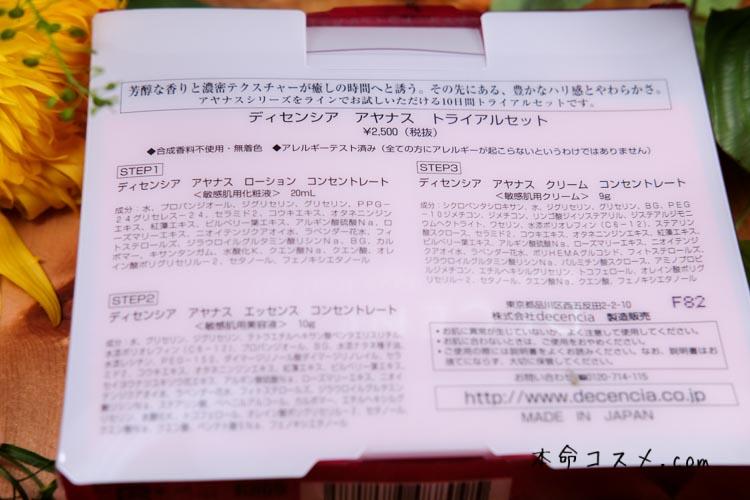 芳醇な香りと濃密テクスチャーが癒しの時間へと誘う。その先にある、豊かなハリ感とやわらかさ。
アヤナスシリーズをラインでお試しいただける10日間トライアルセットです。
ディセンシア アヤナス トライアルセット
¥2,500（税抜）
◆合成香料不使用・無着色 ◆アレルギーテスト済み（全ての方にアレルギーが起こらないというわけではありません）
STEP1
ディセンシア アヤナス ローション コンセントレート
＜敏感肌用化粧液＞ 20mL
成分：水、プロパンジオール、ジグリセリン、グリセリン、PPG-
24グリセレス-24、セラミド2、コウキエキス、オタネニンジン
エキス、紅藻エキス、ビルベリー葉エキス、アルギン酸硫酸Na、ロ
ーズマリーエキス、ニオイテンジクアオイ水、ラベンダー花水、フィ
トステロールズ、ジラウロイルグルタミン酸リシンNa、BG、カル
ボマー、キサンタンガム、水酸化K、クエン酸Na、クエン酸、オレ
イン酸ポリグリセリル-2、セタノール、フェノキシエタノール
STEP2
ディセンシア アヤナス エッセンス コンセントレート
＜敏感肌用美容液＞ 10g
STEP3
ディセンシア アヤナス クリーム コンセントレート
＜敏感肌用クリーム＞ 9g
成分：シクロペンタシロキサン、水、ジグリセリン、グリセリン、BG、PEG
-10ジメチコン、ジメチコン、リンゴ酸ジイソステアリル、ジステアルジモニ
ウムヘクトライト、ワセリン、水添ポリオレフィン（C6-12）、ステアリン
酸スクロース、セラミド2、コウキエキス、オタネニンジンエキス、紅藻エキス、
ビルベリー葉エキス、アルギン酸硫酸Na、ローズマリーエキス、ニオイテンジ
クアオイ水、ラベンダー花水、ポリHEMAグルコシド、フィトステロールズ、
ジラウロイルグルタミン酸リシンNa、パルミチン酸スクロース、アミノプロピ
ルジメチコン、エチルヘキシルグリセリン、トコフェロール、オレイン酸ポリグ
リセリル-2、セタノール、クエン酸Na、クエン酸、フェノキシエタノール
東京都品川区西五反田2-2-10
株式会社decencia 製造販売
F82
・お肌に異常が生じていないか、よく注意して使用してください。
・お肌に合わないときは、ご使用をおやめください。
・ご使用の際には説明書をよくお読みください。なお、説明書はお
捨てにならず、大切に保管してください。
お問い合わせ 0120-714-115
http://www.decencia.co.jp
MADE IN JAPAN
本命コスメ.com